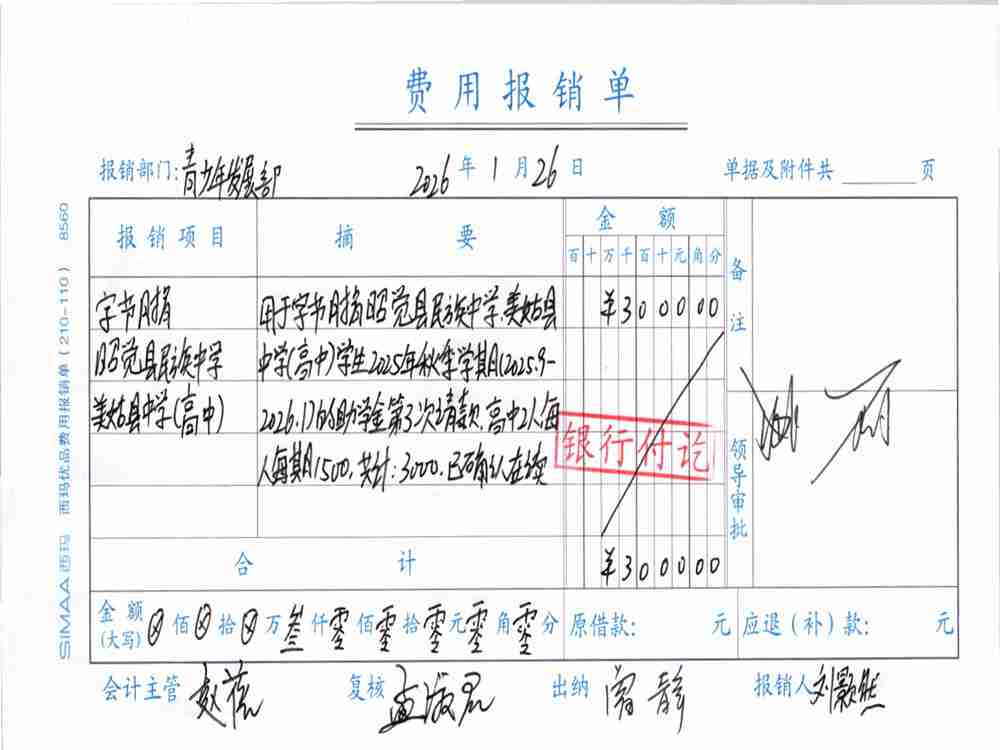 费用报销单
报销部门:青少年发展部 2026年1月26日 单据及附件共 页
报销项目 摘要 金额 备注
百十万千百十元角分
字节月捐 用于字节月捐昭觉县民族中学、美姑县 ¥300000
昭觉县民族中学 中学(高中)学生2025年秋季学期(2025.9-
美姑县中学(高中) 2026.1)的助学金第3次请款,高中2人,每
人每期1500,共计:3000.已确认在读
银行付讫
领导审批
合计 ¥300000
金额(大写) 佰 拾 万叁仟零佰零拾零元零角零分 原借款: 元 应退(补)款: 元
会计主管 复核 孟淑君 出纳 曾静 报销人 刘颢然
SIMAA西玛 西玛优品费用报销单(210-110) 8560